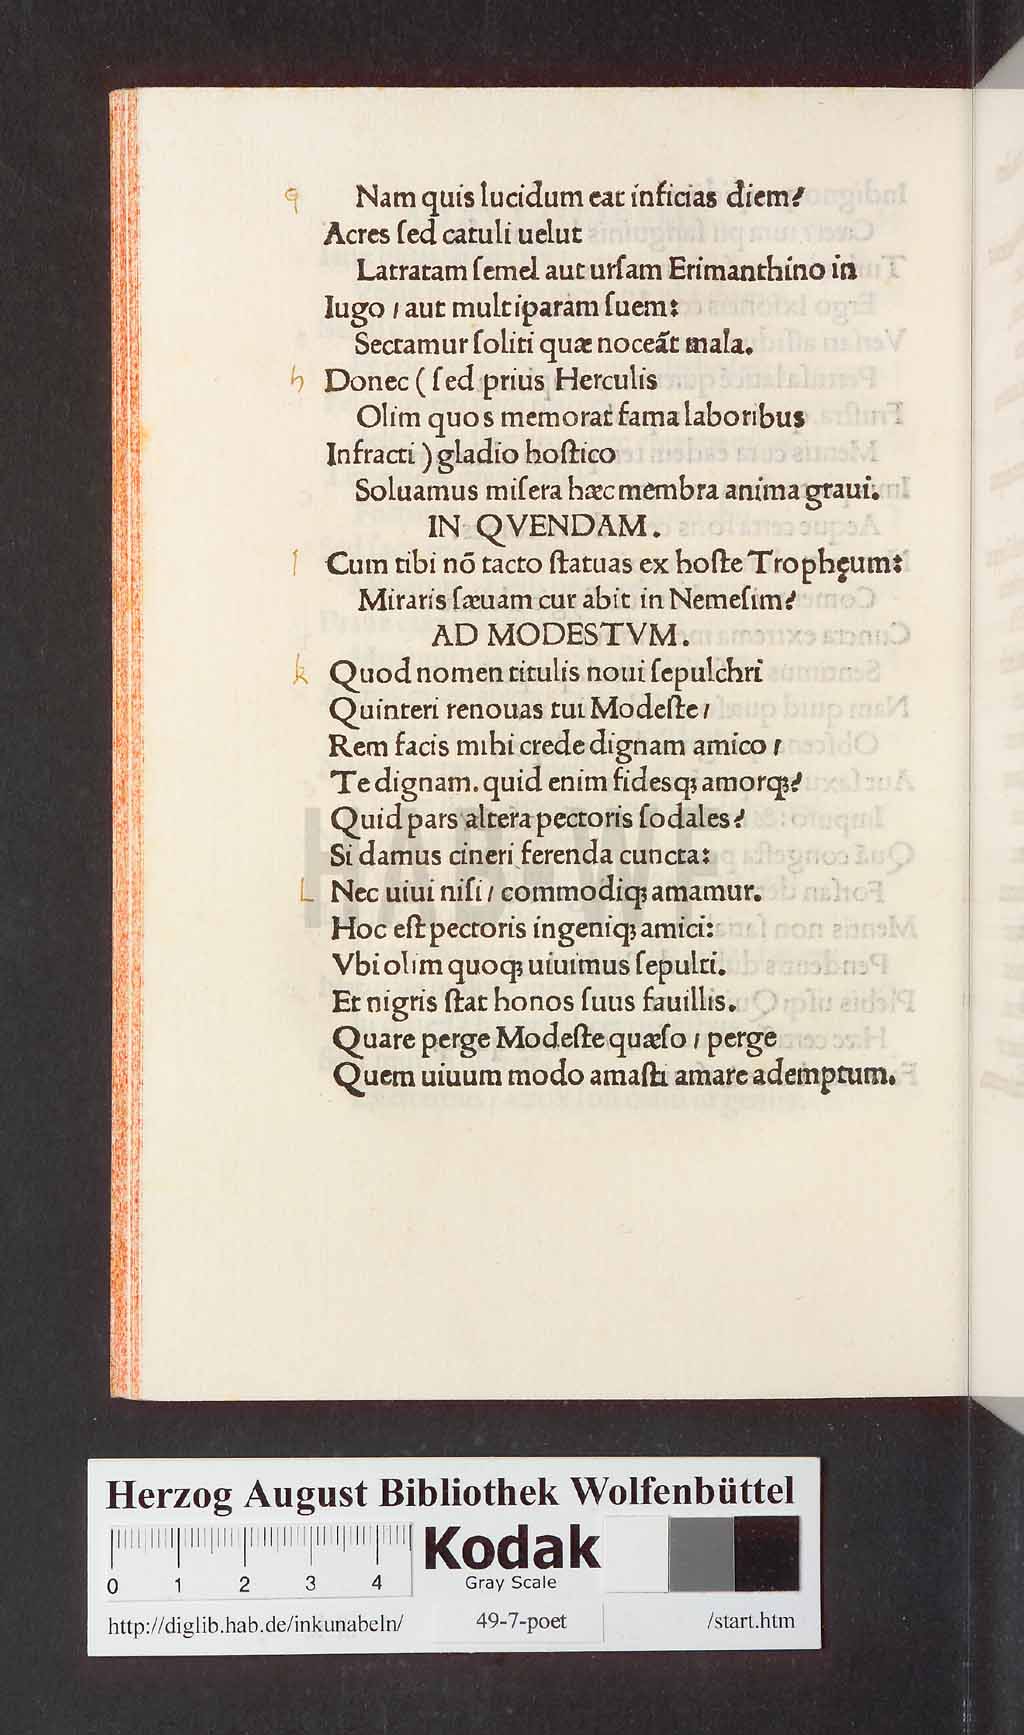 g Nam quis lucidum eat inficias diem?
Acres ſed catuli uelut
Latratam ſemel aut urſam Erimanthino in
Iugo / aut multiparam ſuem:
Sectamur ſoliti quæ noceãt mala.
h Donec ( ſed prius Herculis
Olim quos memorat fama laboribus
Infracti ) gladio hoſtico
Soluamus miſera hæc membra anima graui.
IN QVENDAM.
I Cum tibi nõ tacto ſtatuas ex hoſte Trophęum:
Miraris ſæuam cur abit in Nemeſim?
AD MODESTVM.
k Quod nomen titulis noui ſepulchri
Quinteri renouas tui Modeſte /
Rem facis mihi crede dignam amico /
Te dignam. quid enim fidesqꝫ amorqꝫ?
Quid pars altera pectoris ſodales?
Si damus cineri ferenda cuncta:
L Nec uiui niſi / commodiqꝫ amamur.
Hoc eſt pectoris ingeniqꝫ amici:
Vbi olim quoqꝫ uiuimus ſepulti.
Et nigris ſtat honos ſuus fauillis.
Quare perge Modeſte quæſo / perge
Quem uiuum modo amaſti amare ademptum.
HAB WF
Herzog August Bibliothek Wolfenbüttel
0 1 2 3 4
Kodak
Gray Scale
http://diglib.hab.de/inkunabeln/ 49-7-poet /start.htm